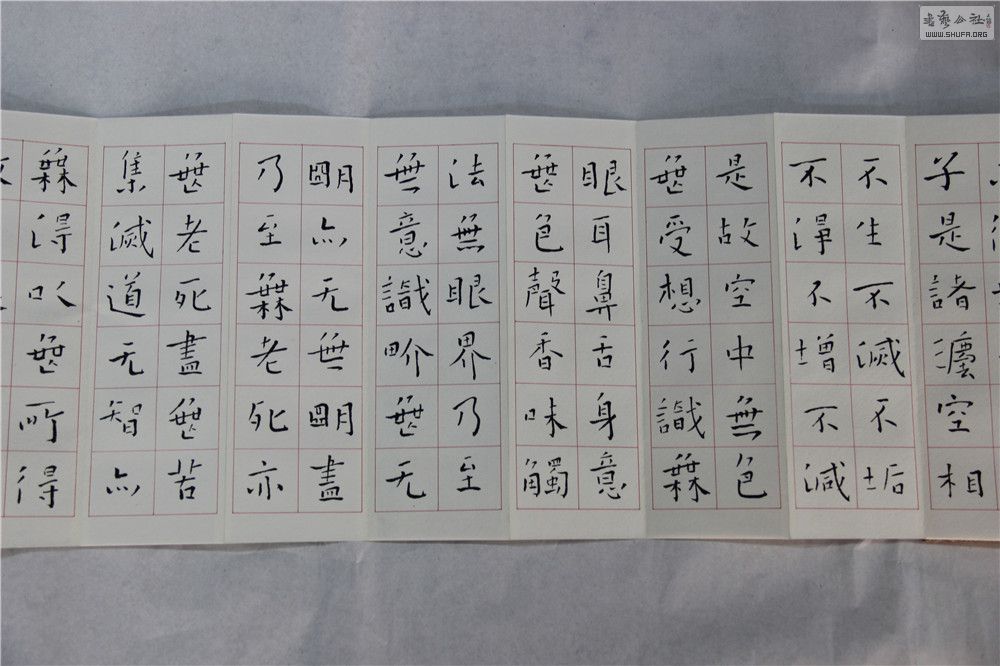 子是諸灋空相
不生不滅不垢
不淨不增不減
是故空中無色
無受想行識橆
眼耳鼻舌身意
無色聲香味觸
法無眼界乃至
無意識畍無无
朙亦无無朙盡
乃至橆老死亦
無老死盡無苦
集滅道无智亦
橆得以無所得
書藝公社
WWW.SHUFA.ORG